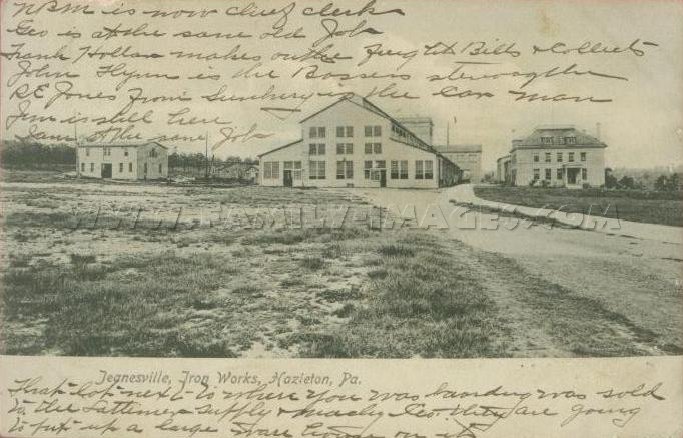 NBM is now chief clerk
Geo is at the same old Job
Frank Hollar makes out the Freight Bills & Collects
John Flynn is the Bossers
R E Jones From Sunbury is the Car man
Jim is still here
I am at the same job
WWW.FAMILY-IMAGES.COM
Jeanesville, Iron Works, Hazleton, Pa.
That lot next to where you was boarding was sold
to the Lattimer Supply & are going
to put up a large ware house on it